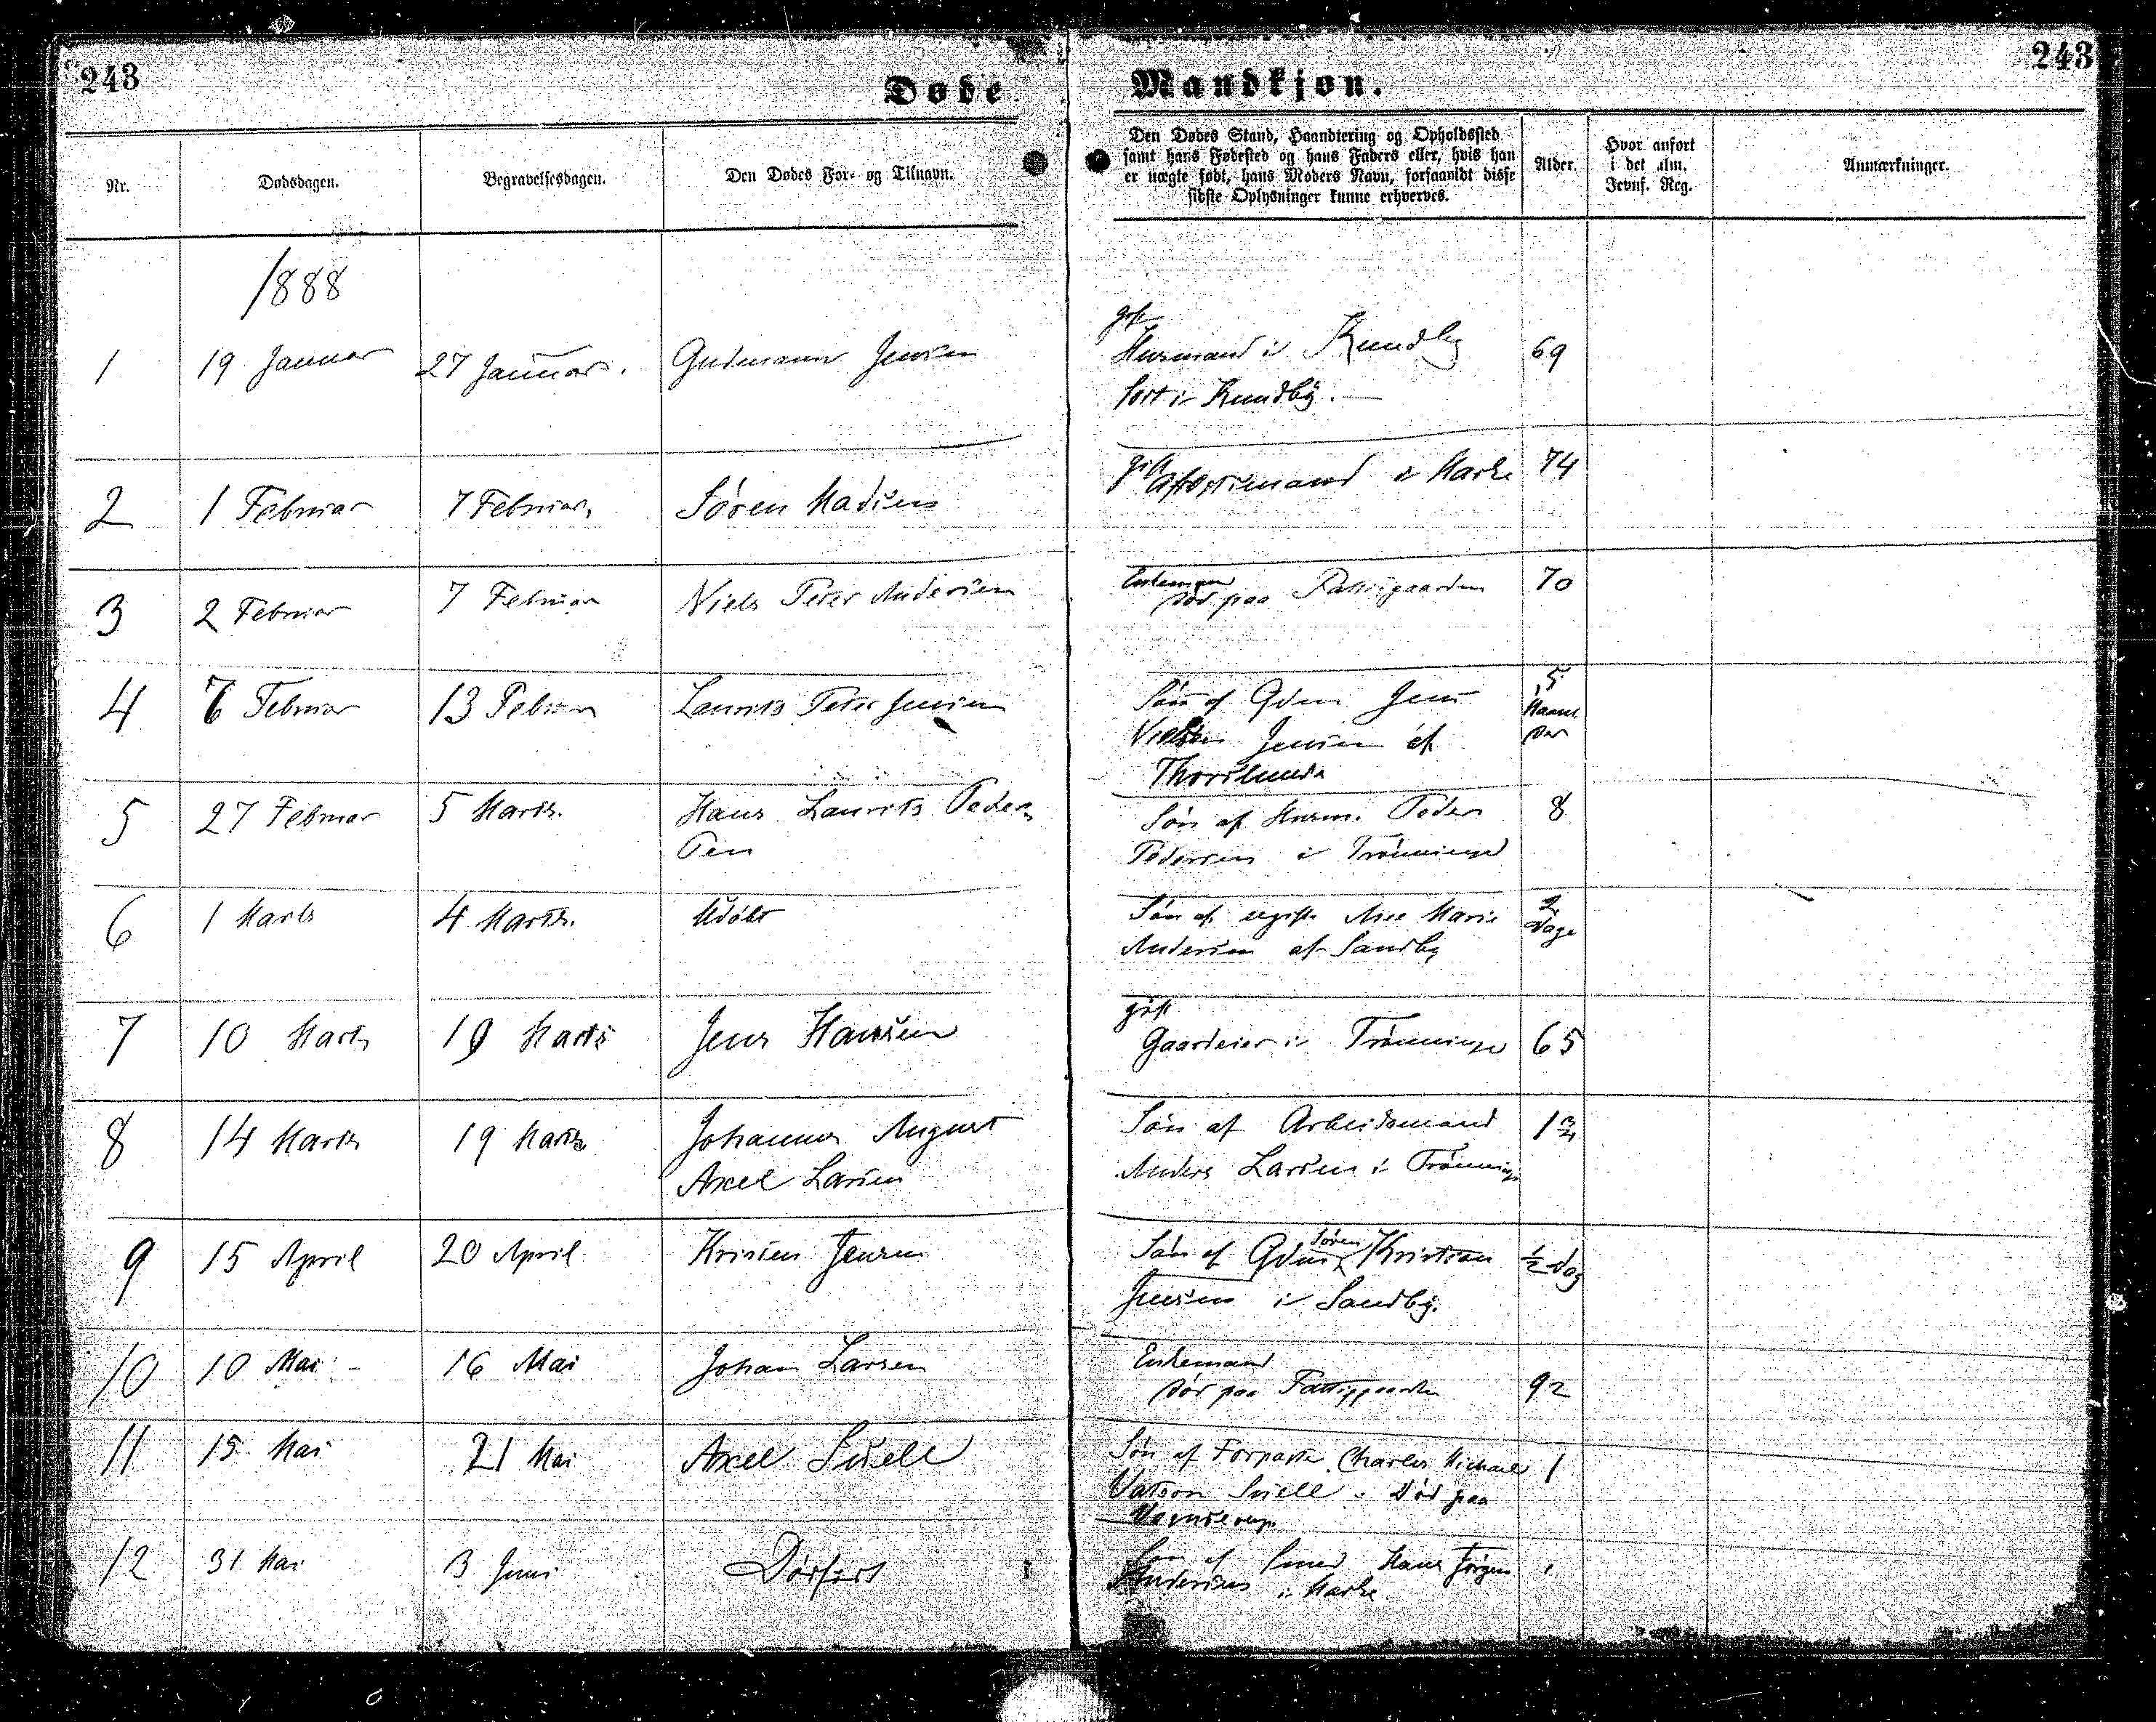 243
243
Døde
Mandkjøn.
Nr.
Dødsdagen.
Begravelsesdagen.
Den Dødes For- og Tilnavn.
Den Dødes Stand, Haandtering og Opholdssted
samt hans Fødested og hans Faders eller, hvis han
er uægte født, hans Moders Navn, forsaavidt disse
sidste Oplysninger kunne erhverves.
Alder.
Hvor anført
i det alm.
Jevnf. Reg.
Anmærkninger.
1888
1 19 Januar 27 Januar. Gudmann Jensen
gift
Huusmand i Kundby 69
født i Kundby.
2 1 Februar 7 Februar, Søren Madsen gift i Marke 74
3 2 Februar 7 Februar Niels Peter Andersen
Enkemand
død paa Fattiggaarden 70
4 6 Februar 13 Februar Laurits Peter Jensen
Søn af Gdm Jens
Jensen af
Thorslunde
5
Maane
der
5 27 Februar 5 Marts. Hans Laurits Peder
sen
Søn af Husm. Peder 8
Pedersen i Trønninge
6 1 Marts 4 Marts. Udøbt
Søn af ugifte Ane Marie
Andersen af Sandby
2
Dage
7 10 Marts 19 Marts Jens Hansen
gift
Gaardeier i Trønninge 65
8 14 Marts 19 Marts Johannes August
Axel Larsen
Søn af Arbeidsmand 1 3/4
Anders Larsen i Trønninge
9 15 April 20 April Kristen Jensen
Søn af Gdm Søren Kristian 1/2 dag
Jensen i Sandby.
10 10 Mai - 16 Mai Johan Larsen
Enkemand
død paa Fattiggaarden 92
11 15 Mai 21 Mai Axel Suell
Søn af Forpagter Charles Michael 1
Watson Suell. Død paa
12 31 Mai 3 Juni Dødfødt
Søn af Smed Hans Jørgen
Andersen i Marke